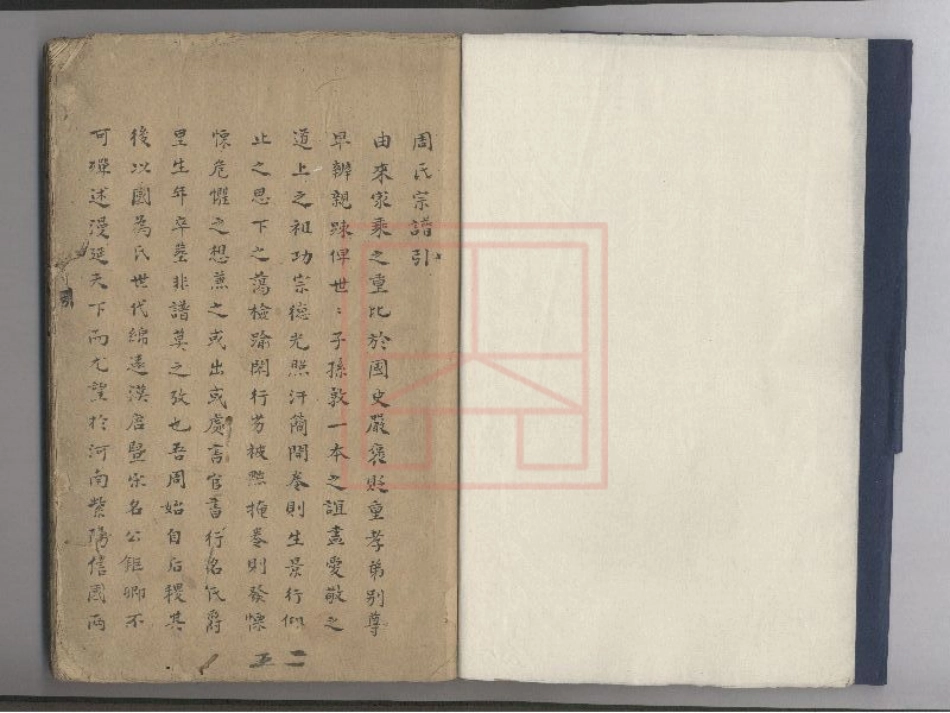 周氏宗譜引
由來家乘之重比於國史嚴褒貶重孝弟別尊
早辦親踈俾世〻子孫敦一本之誼盡愛敬之
道上之祖功宗德光照汗簡開卷則生景行仰
止之思下之蕩檢踰閑行劣被黜掩卷則發慄
慄危懼之想蕙之或出或處言官書行名氏爵
里生年卒塟非譜莫之攷也吾周始自后稷其
後以國為氏世代綿遠漢唐暨宋名公鉅卿不
可殫述漫延天下而尤望於河南紫陽信國兩
二五